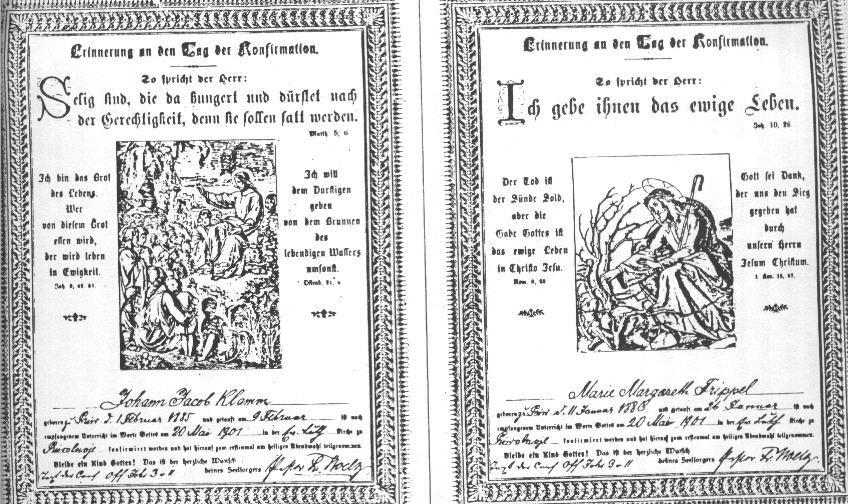 Erinnerung an den Tag der Konfirmation.
So spricht der Herr:
Selig sind, die da hungert und dürstet nach
der Gerechtigkeit, denn sie sollen satt werden.
Matth. 5, 6
Ich bin das Brot
des Lebens.
Wer
von diesem Brot
essen wird,
der wird leben
in Ewigkeit.
Joh. 6,
Ich will
dem Durstigen
geben
von dem Brunnen
des
lebendigen Wassers
umsonst.
Offenb. 21, 6
Johann Jacob Klamm
geboren zu d. 1 Februar 1885 und getauft am 9 Februar ist nach
empfangenem Unterricht im Worte Gottes am 20 Mai 1901 in der Ev. Luth Kirche zu
konfirmiert worden und hat hierauf zum erstenmal am heiligen Abendmahl teilgenommen.
Bleibe ein Kind Gottes! Das ist der herzliche Wunsch
Off Joh 3 v 11 deines Seelsorgers Pastor
Erinnerung an den Tag der Konfirmation.
So spricht der Herr:
Ich gebe ihnen das ewige Leben.
Joh. 10, 28
Der Tod ist
der Sünde Sold,
aber die
Gabe Gottes ist
das ewige Leben
in Christo Jesu.
Röm. 6, 23
Gott sei Dank,
der uns den Sieg
gegeben hat
durch
unsern Herrn
Jesum Christum.
1. Kor. 15, 57.
Marie Margareth Trippel
geboren zu d. 11 Januar 1886 und getauft am 26 Januar ist nach
empfangenem Unterricht im Worte Gottes am 20 Mai 1901 in der Ev. Luth Kirche zu
konfirmiert worden und hat hierauf zum erstenmal am heiligen Abendmahl teilgenommen.
Bleibe ein Kind Gottes! Das ist der herzliche Wunsch
Off Joh 3 v 11 deines Seelsorgers Pastor